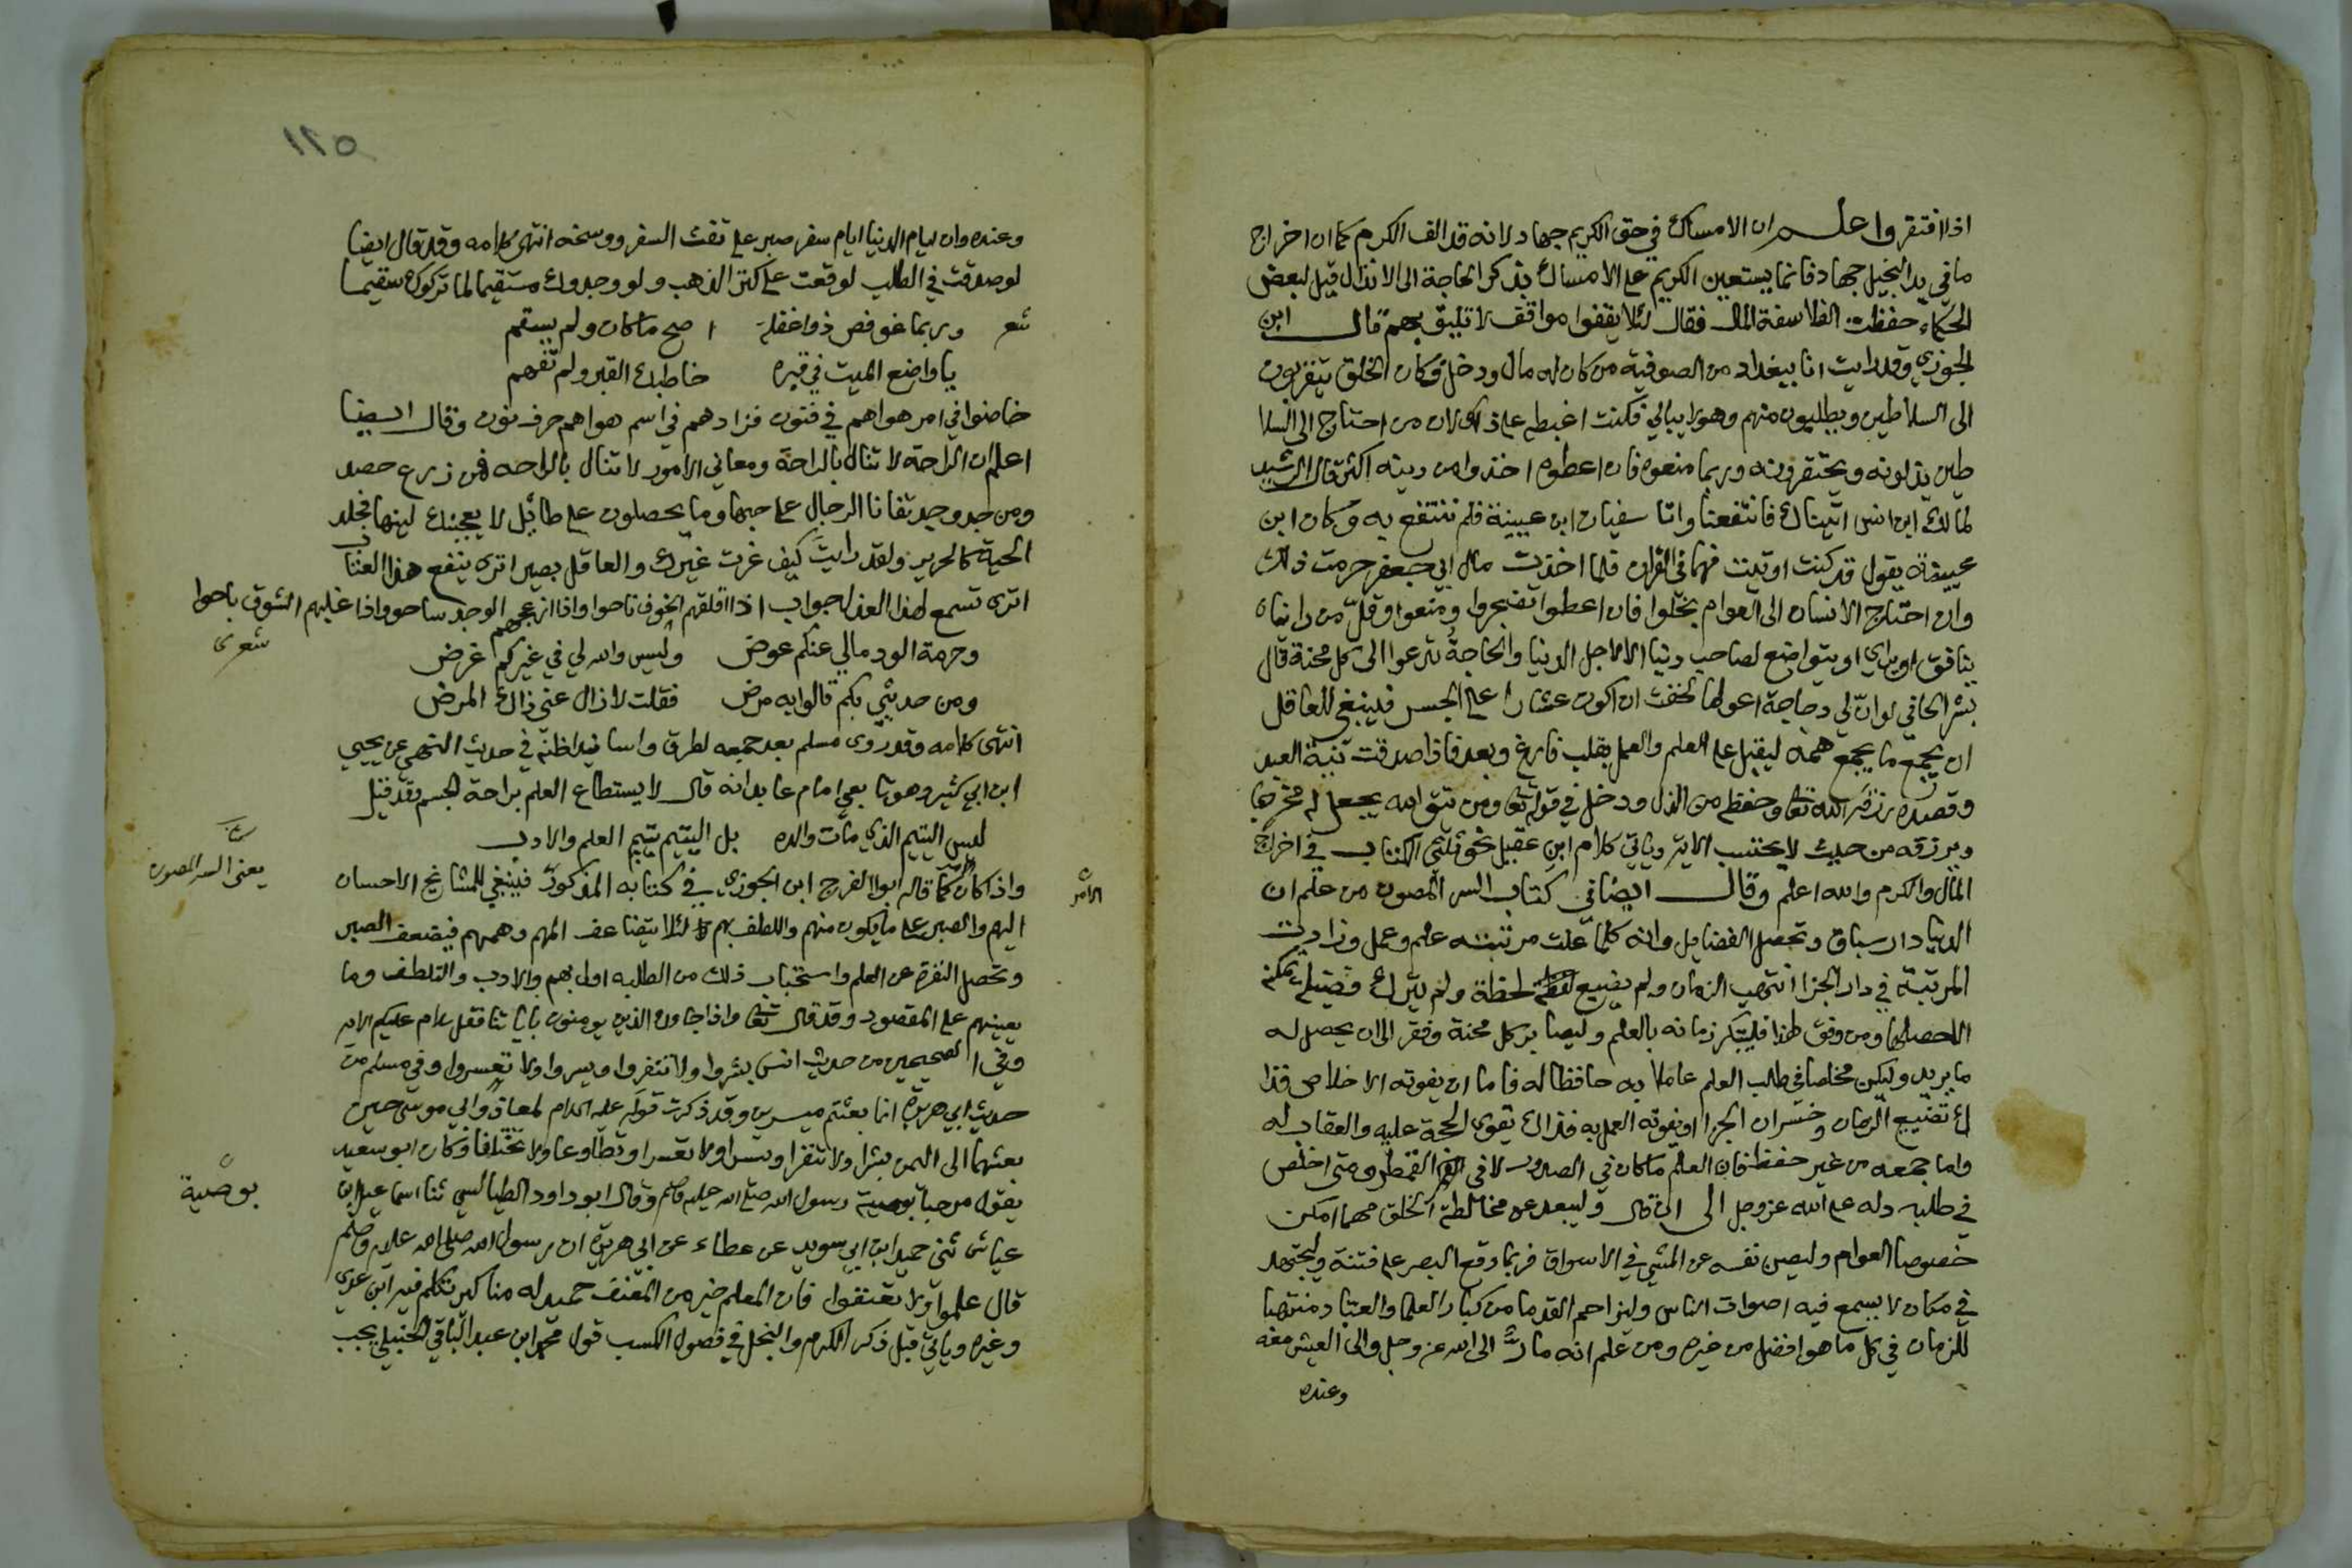 اذا افتقر واعلم ان الامساك في حق الكريم جهاد لانه قد الف الكرم كما ان اخراج
ما في يد البخيل جهاد فانما يستعين الكريم على الامساك بذكر الحاجة الى الانذال قيل لبعض
الحكماء حفظت الفلاسفة المال فقال لئلا يقفوا مواقف لا تليق بهم قال ابن
الجوزي وقد رايت انا ببغداد من الصوفية من كان له مال ودخل وكان الخلق يتقربون
الى السلاطين ويطلبون منهم وهو لا يبالي فكنت اغبطه على ذلك لان من احتاج الى السلا
طين يذلونه ويحتقرونه وربما منعوه فان اعطوه اخذوا من دينه اكثر قال الرشيد
لمالك ابن انس اتيناك فانتفعنا واتانا سفيان ابن عيينة فلم ننتفع به وكان ابن
عيينة يقول قد كنت اوتيت فهما في القران فلما اخذت مال ابي جعفر حرمت ذلك
وان احتاج الانسان الى العوام بخلوا فان اعطوا تضجروا ومنعوا وقل من رايناه
ينافق او يرائي او يتواضع لصاحب دنيا الا لاجل الدنيا والحاجة تدعوا الى كل محنة قال
بشر الحافي لو ان لي دجاجة اعولها لخفت ان اكون عشارا على الجسر فينبغي للعاقل
ان يجمع ما يجمع همه ليقبل على العلم والعمل بقلب فارغ وبعد فاذا صدقت نية العبد
وقصده رزقه الله تعالى وحفظه من الذل ودخل في قوله تعالى ومن يتق الله يجعل له مخرجا
ويرزقه من حيث لا يحتسب الاية وياتي كلام ابن عقيل نحو ثلثي الكتاب في اخراج
المال والكرم والله اعلم وقال ايضا في كتاب السر المصون من علم ان
الدنيا دار سباق وتحصيل الفضايل وانه كلما علت مرتبته علم وعمل وزادت
المرتبة في دار الجزا انتهب الزمان ولم يضيع لحظة ولم يترك فضيلة تمكنه
الا حصلها ومن وفق لهذا فليبتكر زمانه بالعلم وليصابر كل محنة وفقر الى ان يحصل له
ما يريد وليكن مخلصا في طلب العلم عاملا به حافظا له فاما ان يفوته الاخلاص فذا
ك تضييع الزمان وخسران الجزا او يفوته العمل به فذاك يقوى الحجة عليه والعقاب له
واما جمعه من غير حفظ فان العلم ما كان في الصدور لا في القمطر ومتى اخلص
في طلبه دله على الله عز وجل الى ان قال وليبعد عن مخالطة الخلق مهما امكن
خصوصا العوام وليصن نفسه عن المشي في الاسواق فربما وقع البصر على فتنة وليجتهد
في مكان لا يسمع فيه اصوات الناس وليزاحم القدما من كبار العلما والعباد منتهبا
للزمان في كل ما هو افضل من غيره ومن علم انه مار الى الله عز وجل والى العيش معه
وعنده
١٢٥
وعنده وان ايام الدنيا ايام سفر صبر على تفث السفر ووسخه انتهى كلامه وقد قال ايضا
لو صدقت في الطلب لوقعت على كنز الذهب ولو وجدوك مستقيما لما تركوك سقيما
شعر وربما غوفص ذو غفلة اصح ما كان ولم يسقم
يا واضع الميت في قبره خاطبك القبر ولم تفهم
خاضوا في امر هواهم في فنون فزادهم في اسم هواهم حرف نون وقال ايضا
اعلم ان الراحة لا تنال بالراحة ومعالي الامور لا تنال بالراحه فمن زرع حصد
ومن جد وجد تفانا الرجال على حبها وما يحصلون على طائل لا يعجبك لينها فجلد
الحية كالحرير ولقد رايت كيف غرت غيرك والعاقل بصير اترى ينفع هذا العتاب
اترى تسمع لهذا العذل جواب اذا اقلقهم الخوف ناحوا واذا ازعجهم الوجد ساحو واذا غلبهم الشوق باحوا
شعرى
وحرمة الود مالي عنكم عوض وليس والله لي في غيركم غرض
ومن حديثي بكم قالوا به مرض فقلت لا زال عني ذاك المرض
انتهى كلامه وقد روى مسلم بعد جمعه لطرق واسانيد اظنه في حديث النهي عن يحيى
ابن ابي كثير وهو تابعي امام عابد انه قال لا يستطاع العلم براحة الجسم وقد قيل
ليس اليتيم الذي مات والده بل اليتيم يتيم العلم والادب
يعني السر المصون
واذا كان كما قاله ابو الفرج ابن الجوزي في كتابه المذكور فينبغي للمشايخ الاحسان
الامر
اليهم والصبر على ما يكون منهم واللطف بهم لئلا يتضاعف المهم وهمهم فيضعف الصبر
وتحصل النفرة عن العلم واستحباب ذلك من الطلبه اولى بهم والادب والتلطف وما
يعينهم على المقصود وقد قال تعالى واذا جاوك الذين يومنون باياتنا فقل سلام عليكم الاية
وفي الصحيحين من حديث انس بشروا ولا تنفروا ويسروا ولا تعسروا وفي مسلم من
حديث ابي هريرة انما بعثتم ميسرين وقد ذكرت قوله عليه السلام لمعاذ وابي موسى حين
بعثهما الى اليمن بشرا ولا تنفرا ويسرا ولا تعسرا وتطاوعا ولا تختلفا وكان ابو سعيد
يقول مرحبا بوصية رسول الله صلى الله عليه وسلم وقال ابو داود الطيالسي ثنا اسماعيل ابن
بوصية
عياش ثني حميد ابن ابي سويد عن عطاء عن ابي هريرة ان رسول الله صلى الله عليه وسلم
قال علموا ولا تعنفوا فان المعلم خير من المعنف حميد له مناكير تكلم فيه ابن عدي
وغيره وياتي قبل ذكر الكرم والبخل في فصول الكسب قول محمد ابن عبد الباقي الحنبلي يجب